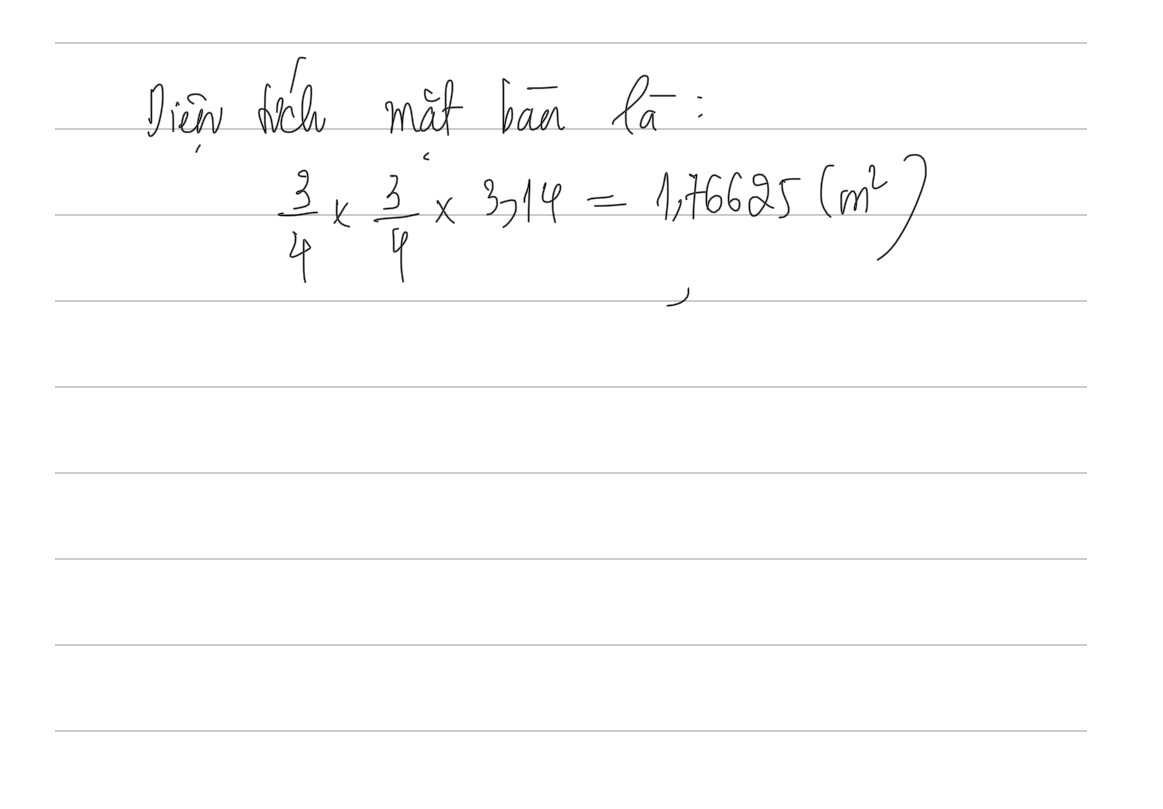 Diện tích mặt bàn là :
3/4 x 3/4 x 3,14 = 1,76625 (m²)